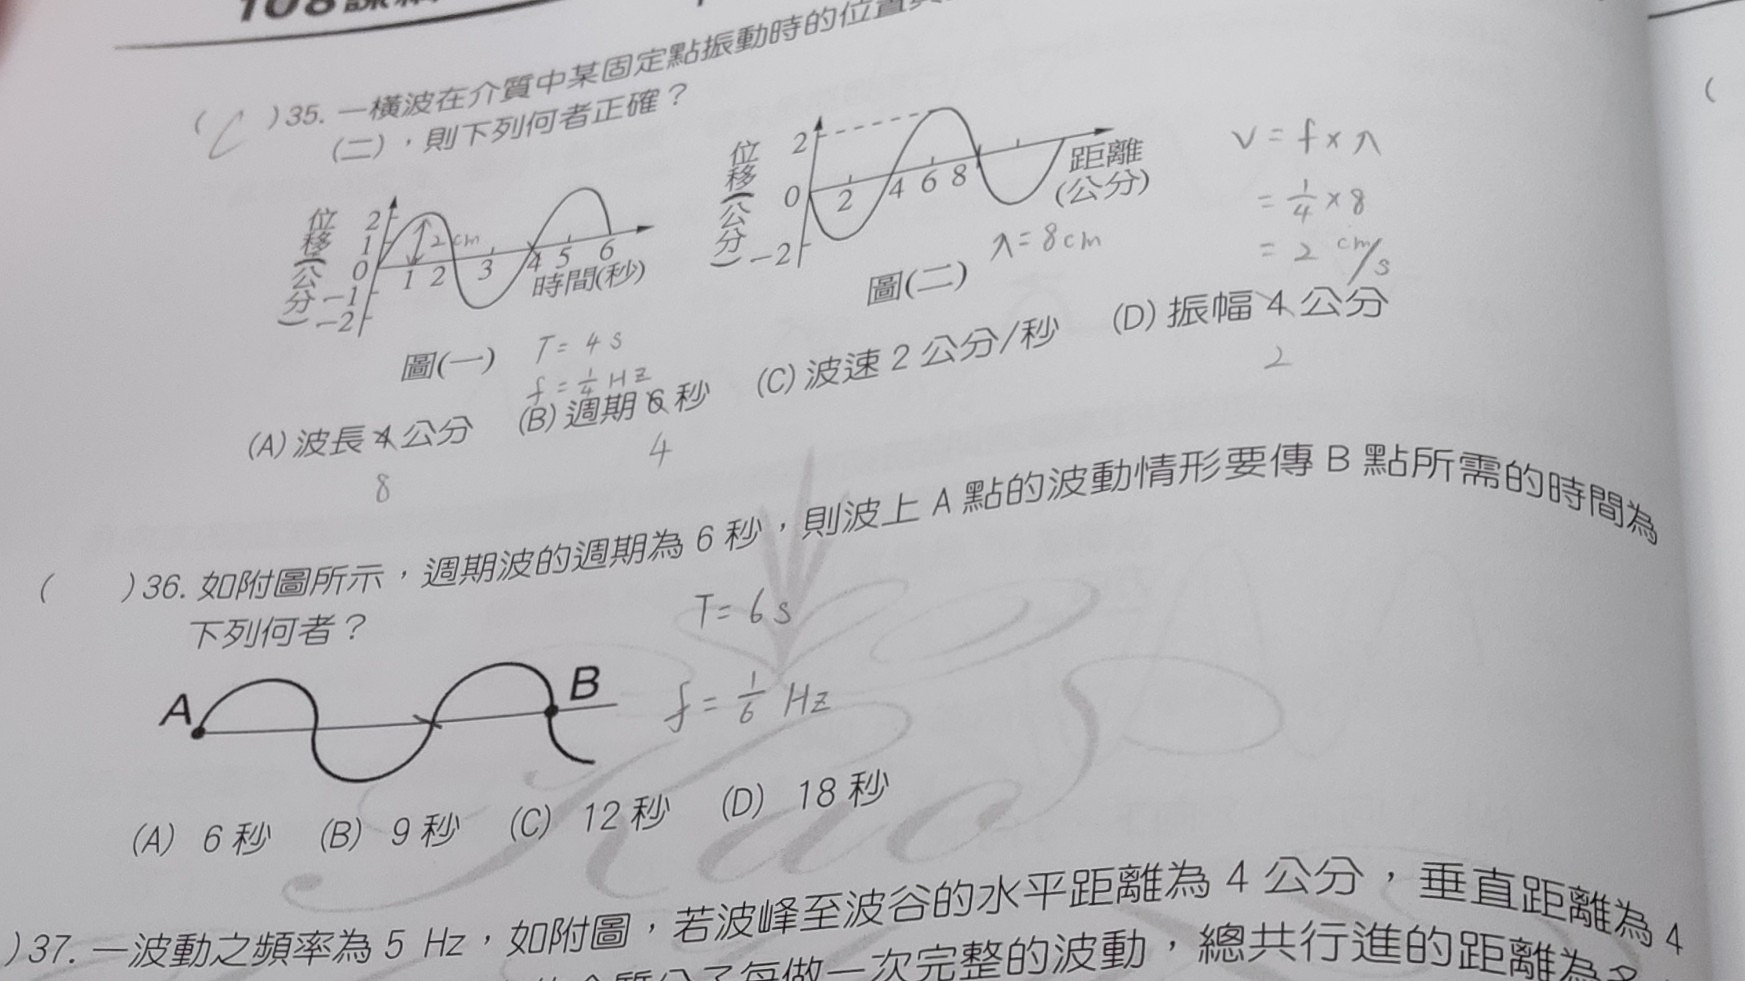 108課
( C )35. 一橫波在介質中某固定點振動時的位置
(二)，則下列何者正確？
位移(公分)
2
1
0
-1
-2
2 cm
1 2 3 4 5 6
時間(秒)
圖(一)
T = 4 s
f = 1/4 Hz
位移(公分)
2
0
-2
2 4 6 8
距離
(公分)
圖(二)
λ = 8 cm
v = f × λ
= 1/4 × 8
= 2 cm/s
(A) 波長 4 公分 (B) 週期 6 秒 (C) 波速 2 公分/秒 (D) 振幅 4 公分
8 4 2
( )36. 如附圖所示，週期波的週期為 6 秒，則波上 A 點的波動情形要傳 B 點所需的時間為
下列何者？
T = 6 s
A B
f = 1/6 Hz
(A) 6 秒 (B) 9 秒 (C) 12 秒 (D) 18 秒
Kao
)37. 一波動之頻率為 5 Hz，如附圖，若波峰至波谷的水平距離為 4 公分，垂直距離為 4
介質分子每做一次完整的波動，總共行進的距離為多
(